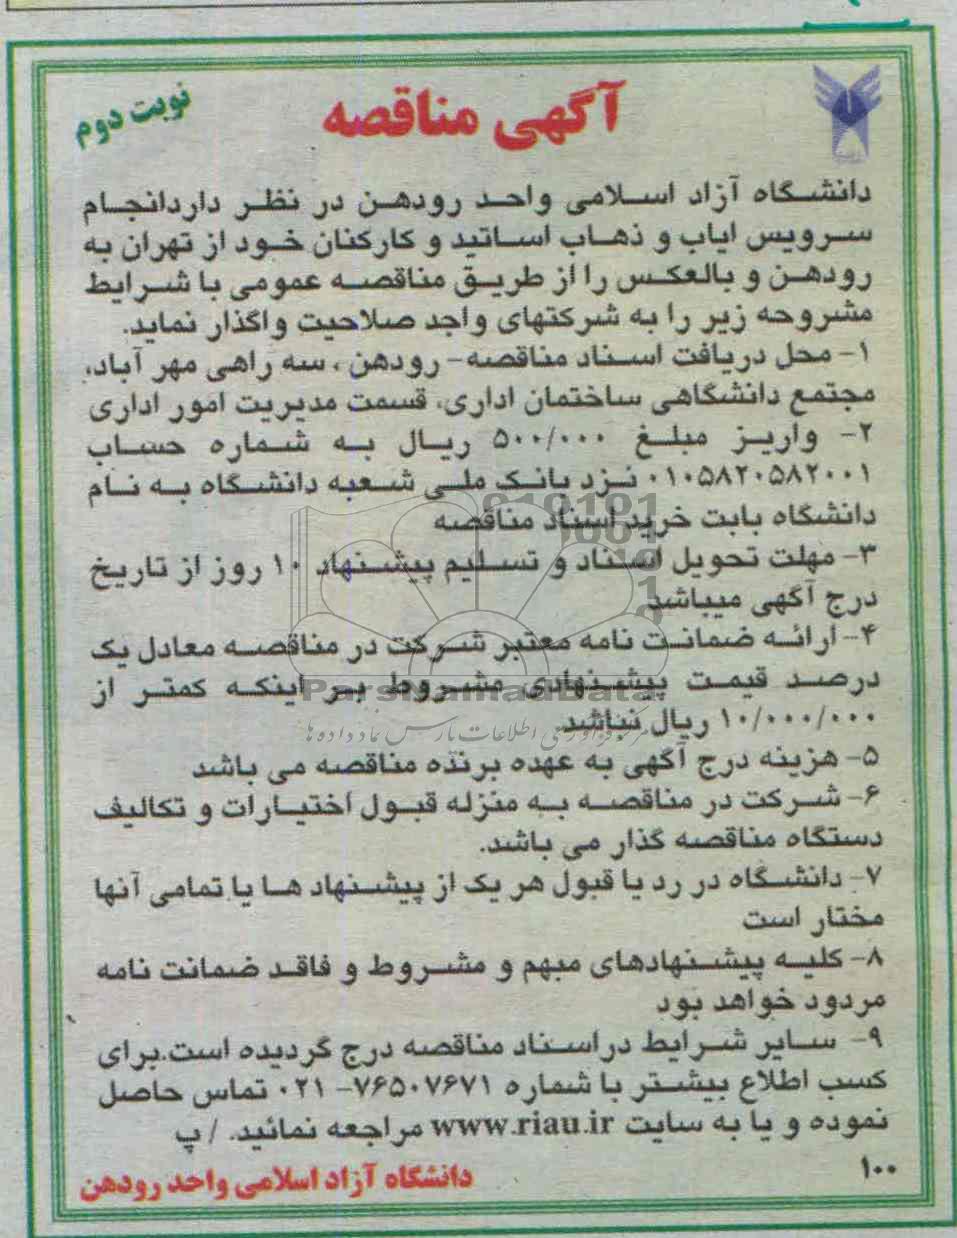 آگهی مناقصه
نوبت دوم
دانشگاه آزاد اسلامی واحد رودهن در نظر داردانجام
سرویس ایاب و ذهاب اساتید و کارکنان خود از تهران به
رودهن و بالعکس را از طریق مناقصه عمومی با شرایط
مشروحه زیر را به شرکتهای واجد صلاحیت واگذار نماید.
۱- محل دریافت اسناد مناقصه- رودهن، سه راهی مهر آباد،
مجتمع دانشگاهی ساختمان اداری، قسمت مدیریت امور اداری
۲- واریز مبلغ ۵۰۰/۰۰۰ ریال به شماره حساب
۰۱۰۵۸۲۰۵۸۲۰۰۱ نزد بانک ملی شعبه دانشگاه به نام
دانشگاه بابت خرید اسناد مناقصه
۳- مهلت تحویل اسناد و تسلیم پیشنهاد ۱۰ روز از تاریخ
درج آگهی میباشد
۴- ارائه ضمانت نامه معتبر شرکت در مناقصه معادل یک
درصد قیمت پیشنهادی مشروط بر اینکه کمتر از
۱۰/۰۰۰/۰۰۰ ریال نباشد.
ParsNamadData
۵- هزینه درج آگهی به عهده برنده مناقصه می باشد
۶- شرکت در مناقصه به منزله قبول اختیارات و تکالیف
دستگاه مناقصه گذار می باشد.
۷- دانشگاه در رد یا قبول هر یک از پیشنهاد ها یا تمامی آنها
مختار است
۸- کلیه پیشنهادهای مبهم و مشروط و فاقد ضمانت نامه
مردود خواهد بود
۹- سایر شرایط در اسناد مناقصه درج گردیده است.برای
کسب اطلاع بیشتر با شماره ۷۶۵۰۷۶۷۱- ۰۲۱ تماس حاصل
نموده و یا به سایت www.riau.ir مراجعه نمائید. / پ
۱۰۰
دانشگاه آزاد اسلامی واحد رودهن